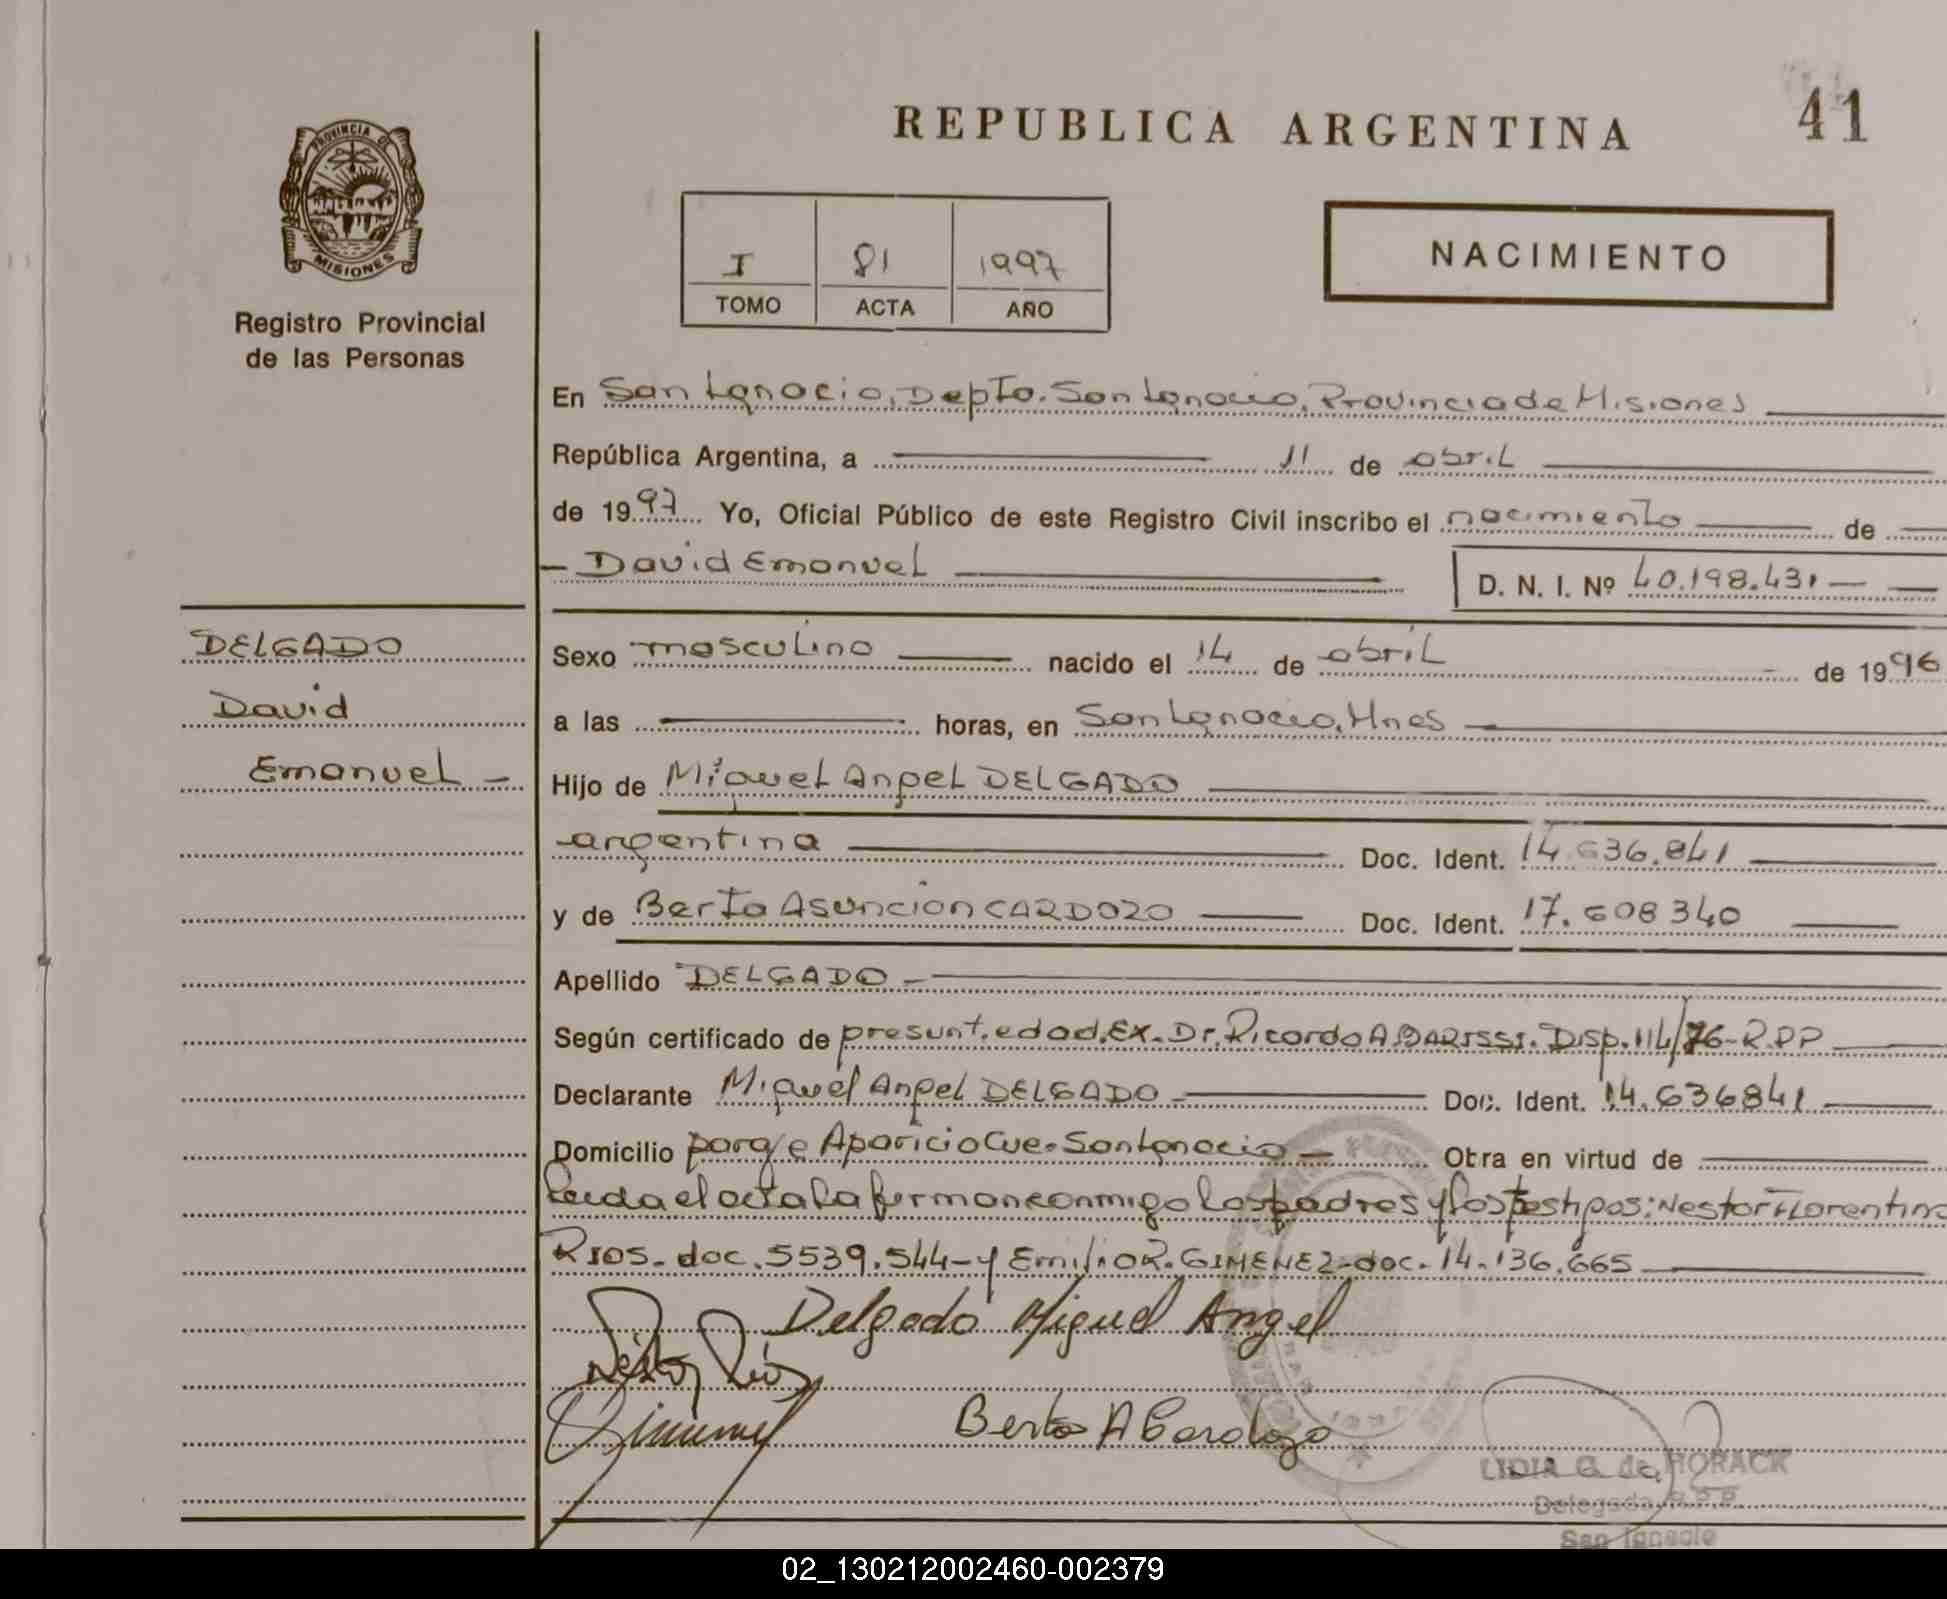 REPUBLICA ARGENTINA
41
PROVINCIA DE
MISIONES
Registro Provincial
de las Personas
I 81 1997
TOMO ACTA AÑO
NACIMIENTO
En San Ignacio, Depto. San Ignacio, Provincia de Misiones
República Argentina, a 11 de abril
de 1997 Yo, Oficial Público de este Registro Civil inscribo el nacimiento de
David Emanuel D. N. I. Nº 40.198.431
DELGADO
David
Emanuel
Sexo masculino nacido el 14 de abril de 1996
a las horas, en San Ignacio, Mnes
Hijo de Miguel Angel DELGADO
argentina Doc. Ident. 14.636.841
y de Berta Asunción CARDOZO Doc. Ident. 17.608340
Apellido DELGADO
Según certificado de presunt. edad. Ex. Dr. Ricardo A. Disp. 114/76-R.PP
Declarante Miguel Angel DELGADO Doc. Ident. 14.636841
Domicilio paraje Aparicio Cue. San Ignacio Otra en virtud de
Leida el acta la firman conmigo los padres y los testigos: Nestor Florentino
RIOS. doc. 5539.544-y Emilio R. GIMENEZ-doc. 14.136.665
Delgado Miguel Angel
Néstor Ríos
Berta A Cardozo
LIDIA G. de HORACK
Delegada R.P.P.
San Ignacio
02_130212002460-002379